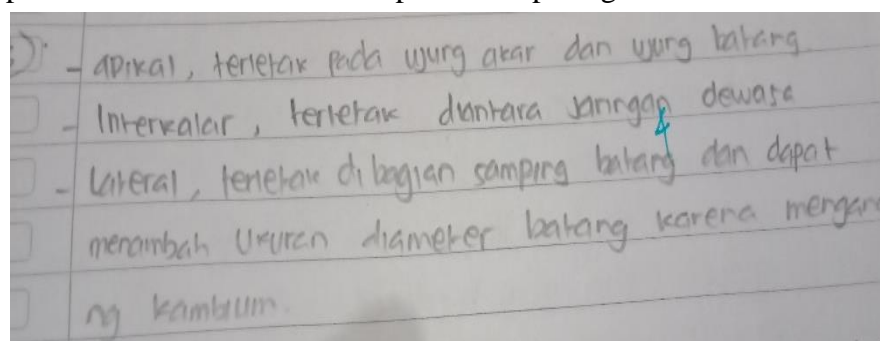 - apikal, terletak pada ujung akar dan ujung batang
- Interkalar, terletak diantara jaringan dewasa
- Lateral, terletak di bagian samping batang dan dapat
menambah Ukuran diameter batang karena mengan
ng kambium.